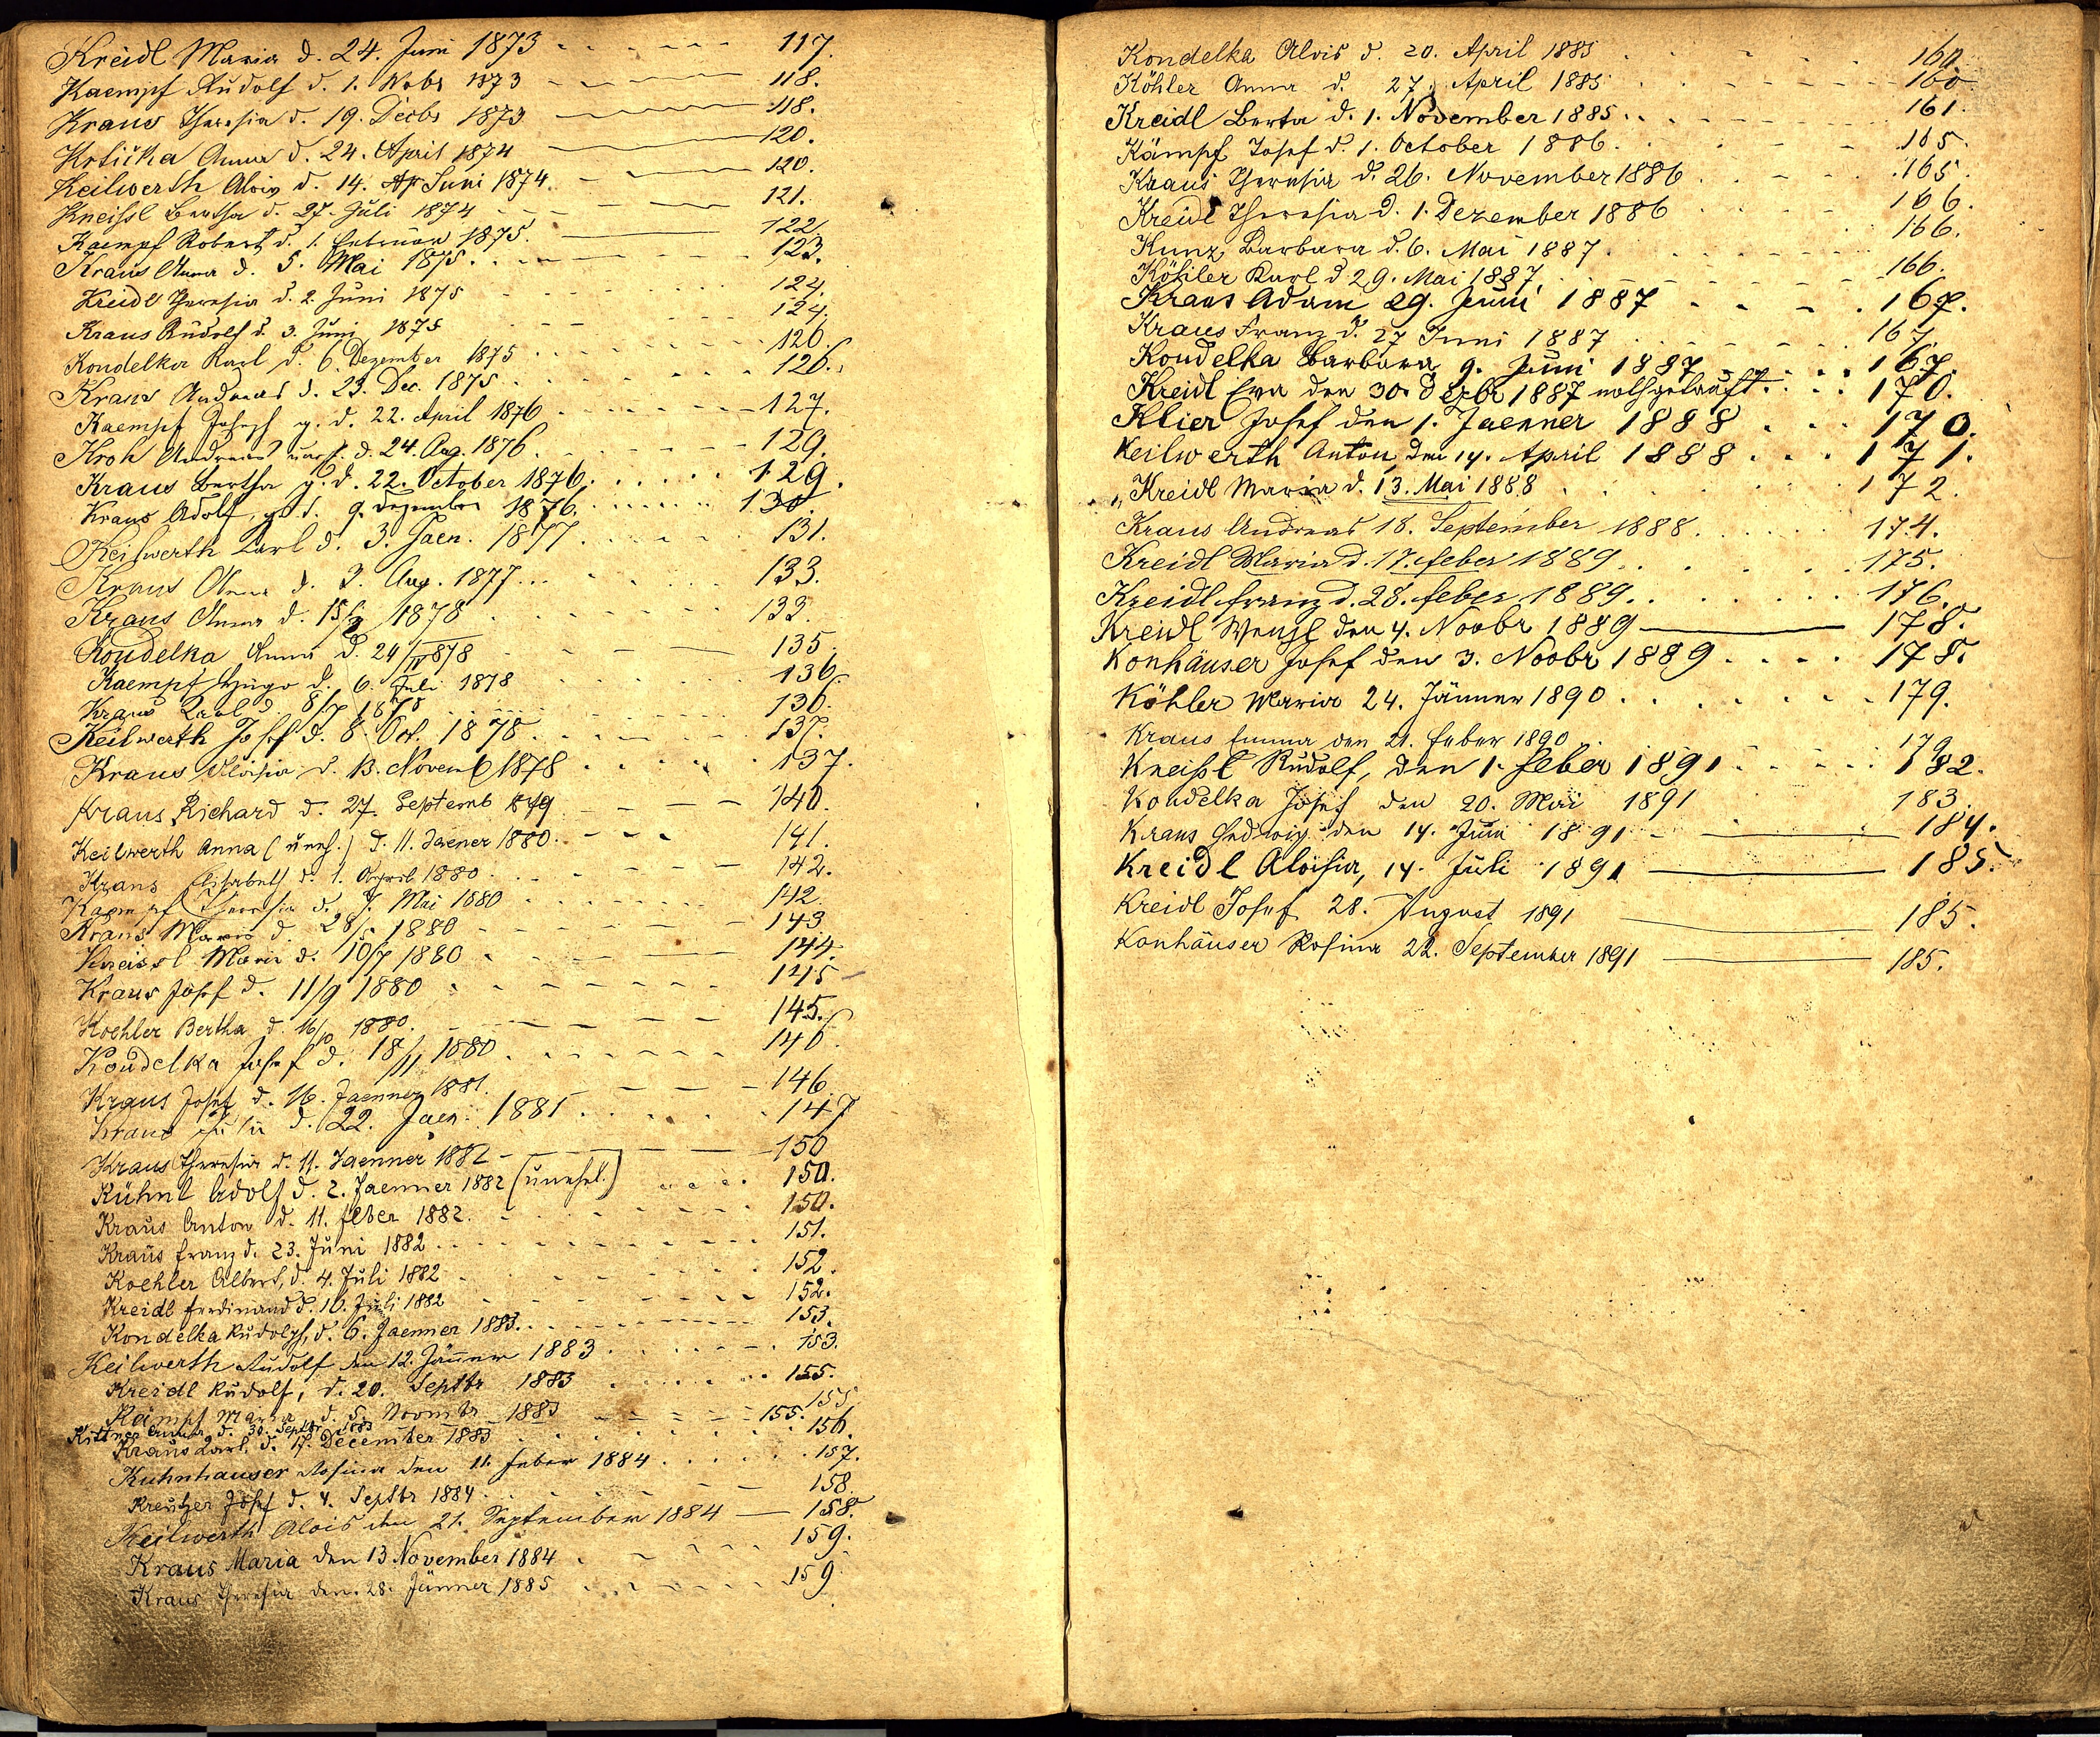 Kreidl Maria d. 24. Juni 1873 117.
Kaempf Rudolf d. 1. Nobr 1873 118.
Kraus Theresia d. 19. Decbr 1873 118.
Krticka Anna d. 24. April 1874 120.
Keilwerth Alois d. 14. Juni 1874. 120.
Kneissl Bertha d. 27. Juli 1874 121.
Kaempf Robert d. 1. Februar 1875. 122.
Kraus Anna d. 5. Mai 1875. 123.
Kreidl Theresia d. 2. Juni 1875 124.
Kraus Rudolf d. 3. Juni 1875 124.
Kondelka Karl d. 6. Dezember 1875 126.
Kraus Andreas d. 23. Dec. 1875 126.
Kaempf Joseph g. d. 22. April 1876 127.
Kroh Andreas d. 24. Aug. 1876. 129.
Kraus Bertha g. d. 22. October 1876. 129.
Kraus Adolf, g. d. 9. Dezember 1876. 130.
Keilwerth Karl d. 3. Jaen. 1877. 131.
Kraus Anna d. 3. Aug. 1877. 133.
Kraus Anna d. 15/2 1878 133.
Koudelka Anna d. 24/IV 1878 135.
Kaempf Hugo d. 6. Juli 1878 136.
Kraus Karl d. 8/7 1878 136.
Keilwerth Josef d. 8. Oct. 1878. 137.
Kraus Aloisia d. 13. Novemb 1878 137.
Kraus Richard d. 27. Septemb 1879 140.
Keilwerth Anna (uneh.) d. 11. Jaener 1880. 141.
Kraus Elisabeth d. 1. April 1880 142.
Kaempf Theresia d. 7. Mai 1880 142.
Kraus Maria d. 28/5 1880 143
Kneissl Maria d. 10/7 1880 144.
Kraus Josef d. 11/9 1880 145
Koehler Bertha d. 16/10 1880. 145.
Koudelka Josef d. 18/11 1880. 146.
Kraus Josef d. 16. Jaenner 1881. 146.
Kraus d. 22. Jaen. 1881. 147
Kraus Theresia d. 11. Jaenner 1882 150
Kühnl Adolf d. 2. Jaenner 1882 (unehel.) 150.
Kraus Anton d. 11. Feber 1882. 150.
Kraus Franz d. 23. Juni 1882 151.
Koehler Albert, d. 4. Juli 1882 152.
Kreidl Ferdinand d. 10. Juli 1882 152.
Kondelka Rudolph, d. 6. Jaenner 1883. 153.
Keilwerth Rudolf den 12. Jänner 1883 153.
Kreidl Rudolf, d. 20. Septbr 1883 155.
Kämpf Maria d. 5. Novmbr 1883 155
Kittner Anna d. 30. Septbr 1883 155.
Kraus Karl d. 17. December 1883 156.
Kuhnhauser Rosina den 11. Feber 1884 157.
Kreutzer Josef d. 4. Septbr 1884 158.
Keilwerth Alois den 21. September 1884 158.
Kraus Maria den 13 November 1884 159.
Kraus Theresia den. 28. Jänner 1885 159
Kondelka Alois d. 20. April 1885 160.
Köhler Anna d. 27. April 1885 160
Kreidl Berta d. 1. November 1885. 161.
Kämpf Josef d. 1. October 1886. 165.
Kraus Theresia d. 26. November 1886 165.
Kreidl Theresia d. 1. Dezember 1886 166.
Kunz Barbara d. 6. Mai 1887. 166.
Köhler Karl d 29. Mai 1887. 166.
Kraus Adam 29. Juni 1887 167.
Kraus Franz d. 27 Juni 1887 167.
Koudelka Barbara 9. Juni 1887 167.
Kreidl Eva den 30. Dezbr 1887 nothgetauft. 170.
Klier Josef den 1. Jaenner 1888 170.
Keilwerth Anton den 14. April 1888 171.
„Kreidl Maria d. 13. Mai 1888 172.
Kraus Andreas 18. September 1888. 174.
Kreidl Maria d. 17. Feber 1889. 175.
Kreidl Franz d. 28. Feber 1889. 176.
Kreidl Wenzl den 4. Novbr 1889 178.
Konhäuser Josef den 3. Novbr 1889 178.
Köhler Maria 24. Jänner 1890 179.
Kraus Emma den 21. Feber 1890 179
Kneissl Rudolf, den 1. Feber 1891 182.
Koudelka Josef den 20. Mai 1891 183.
Kraus Hedwig den 14. Juni 1891 184.
Kreidl Aloisia, 14. Juli 1891 185.
Kreidl Josef 28. August 1891 185.
Konhäuser Rosina 22. September 1891 185.